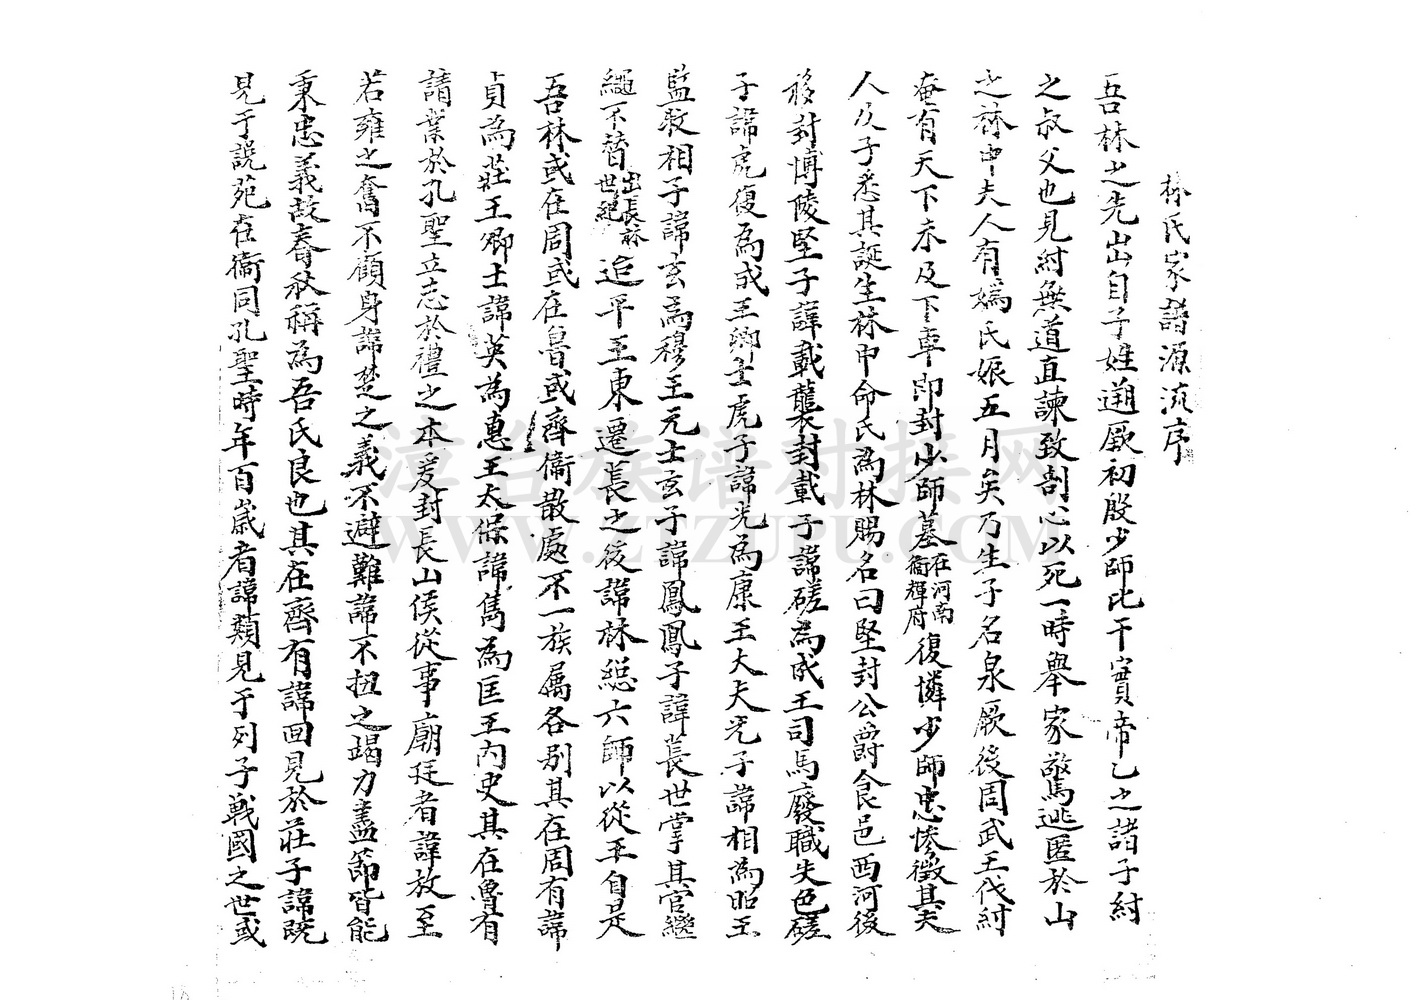 林氏家譜源流序
吾林之先出自子姓遡厥初殷少師比干實帝乙之諸子紂
之叔父也見紂無道直諫致剖心以死一時舉家驚逃匿於山
之林中夫人有媯氏娠五月矣乃生子名泉厥後周武王伐紂
奄有天下未及下車即封少師墓在河南衞輝府復憐少師忠慘徵其夫
人及子悉其誕生林中命氏為林賜名曰堅封公爵食邑西河後
移封博陵堅子諱載襲封載子諱磋為成王司馬廢職失色磋
子諱虎復為成王卿士虎子諱光為康王大夫光子諱相為昭王
監牧相子諱玄為穆王元士玄子諱鳳鳳子諱長世掌其官繼
繩不替出長林世紀迨平王東遷長之後諱林總六師以從王自是
吾林或在周或在魯或齊衞散處不一族屬各别其在周有諱
貞為莊王卿士諱英為惠王太保諱雋為匡王內史其在魯有
請業於孔聖立志於禮之本爰封長山侯從事廟廷者諱放至
若雍之奮不顧身諱楚之義不避難諱不扭之竭力盡節皆能
秉忠義故春秋稱為吾氏良也其在齊有諱回見於莊子諱既
見于說苑在衞同孔聖時年百歲者諱類見于列子戰國之世或
漳台族谱对接网
WWW.ZTZUPU.COM